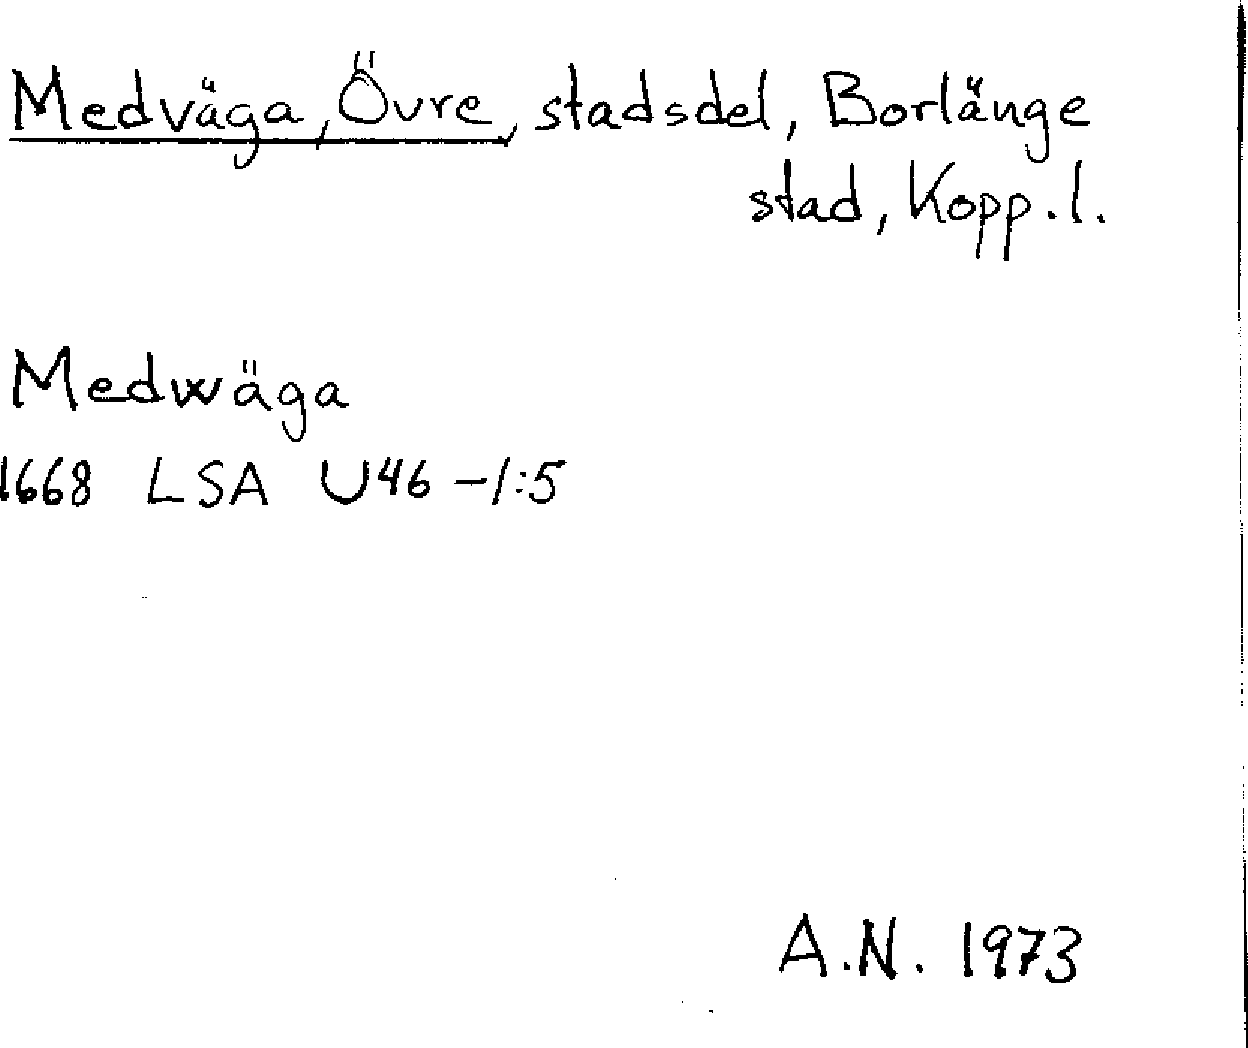 Medväga, Övre, stadsdel, Borlänge
stad, Kopp. l.
Medwäga
1668 LSA U46-1:5
A.N. 1973